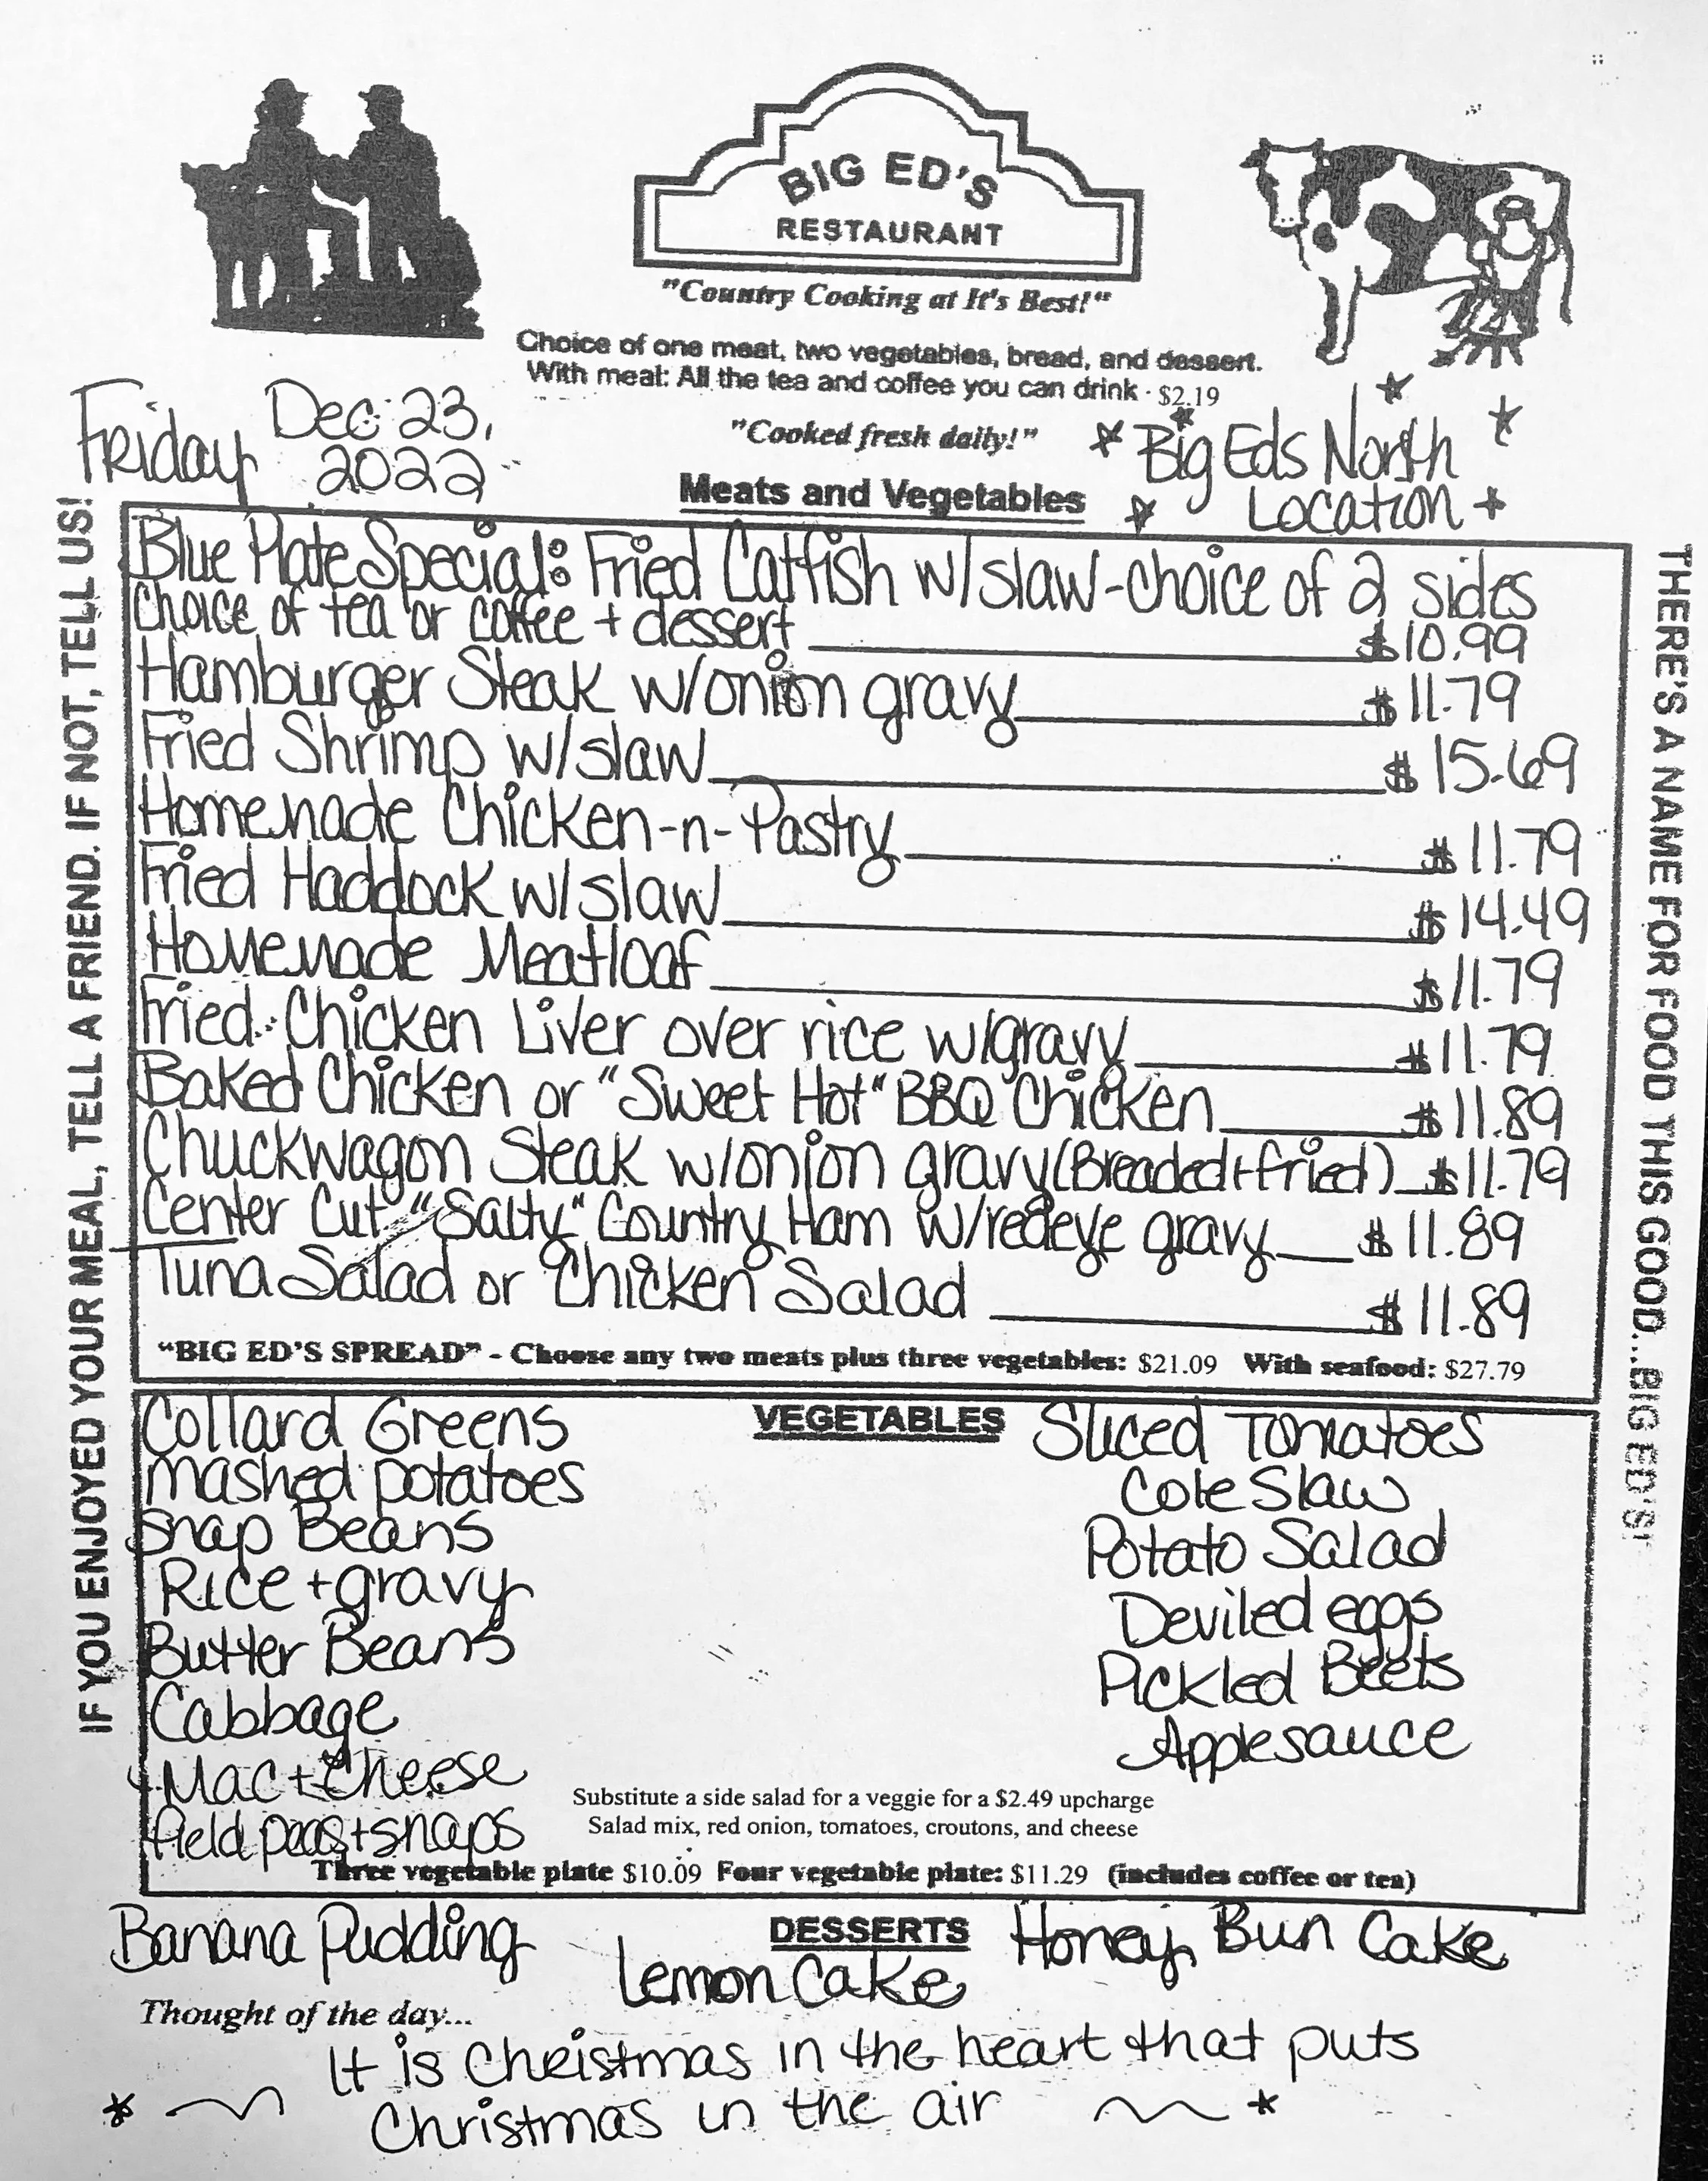 BIG ED'S
RESTAURANT
"Country Cooking at It's Best!"
Choice of one meat, two vegetables, bread, and dessert.
With meal: All the tea and coffee you can drink - $2.19
"Cooked fresh daily!"
Friday Dec 23,
2022
* Big Eds North *
Location *
Meats and Vegetables
IF YOU ENJOYED YOUR MEAL, TELL A FRIEND. IF NOT, TELL US!
Blue Plate Special: Fried Catfish w/slaw-choice of 2 sides
Choice of tea or coffee + dessert $10.99
Hamburger Steak w/onion gravy $11.79
Fried Shrimp w/slaw $15.69
Homemade Chicken-n-Pastry $11.79
Fried Haddock w/slaw $14.49
Homemade Meatloaf $11.79
Fried Chicken Liver over rice w/gravy $11.79
Baked Chicken or "Sweet Hot" BBQ Chicken $11.89
Chuckwagon Steak w/onion gravy (Breaded+fried) $11.79
Center Cut "Salty" Country Ham w/redeye gravy $11.89
Tuna Salad or Chicken Salad $11.89
"BIG ED'S SPREAD" - Choose any two meats plus three vegetables: $21.09 With seafood: $27.79
THERE'S A NAME FOR FOOD THIS GOOD...BIG ED'S!
VEGETABLES
Collard Greens
Mashed potatoes
Snap Beans
Rice + gravy
Butter Beans
Cabbage
Mac + Cheese
field peas + snaps
Sliced Tomatoes
Cole Slaw
Potato Salad
Deviled eggs
Pickled Beets
Applesauce
Substitute a side salad for a veggie for a $2.49 upcharge
Salad mix, red onion, tomatoes, croutons, and cheese
Three vegetable plate $10.09 Four vegetable plate: $11.29 (includes coffee or tea)
DESSERTS
Banana Pudding
Lemon Cake
Honey Bun Cake
Thought of the day...
It is Christmas in the heart that puts
Christmas in the air